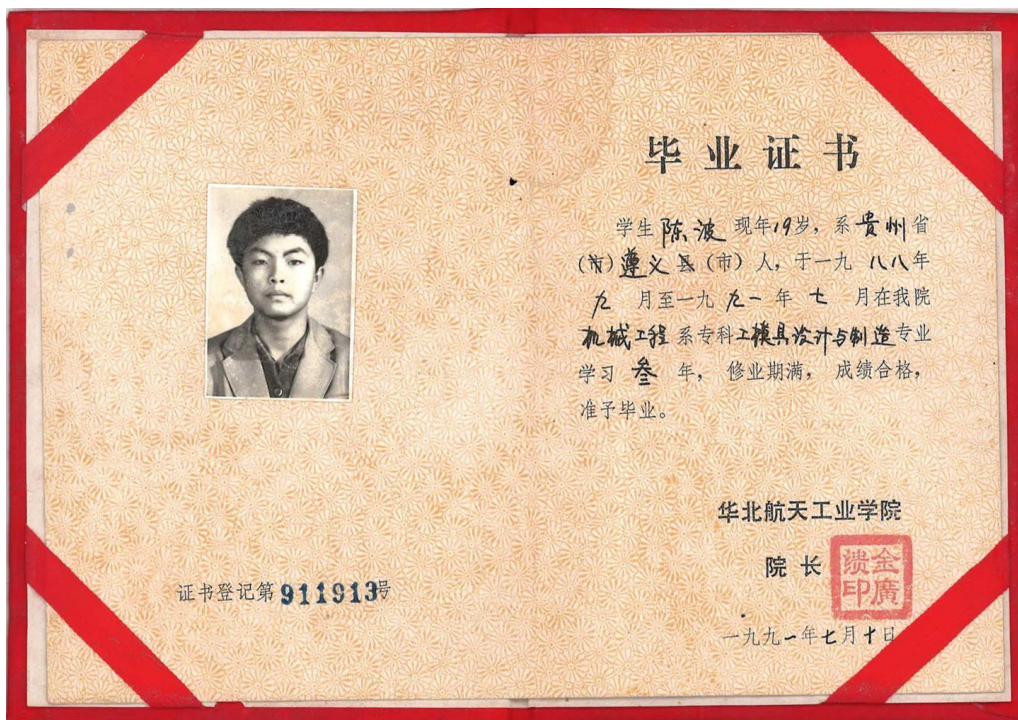 毕业证书
学生陈波现年19岁，系贵州省
（市）遵义县（市）人，于一九八八年
九月至一九九一年七月在我院
机械工程系专科工模具设计与制造专业
学习叁年，修业期满，成绩合格，
准予毕业。
华北航天工业学院
院长
金廣
印
一九九一年七月十日
证书登记第911913号